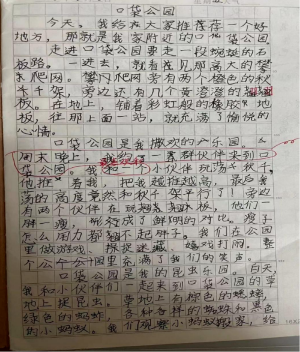 口袋公园
今天。我给大家推荐一个好
地方,那就是我家附近的口袋公园。
走进口袋公园要走一段蜿蜒的石
板路。一进去,就看见那高大的攀
爬网。攀爬网旁有两个橙色的秋
千架,旁边还有几个黄澄澄的
板。在地上,铺着彩虹般的橡胶地
板,往那上面一站,就充满了愉悦的
心情。
口袋公园是我撒欢的乐园。
周末晚上,我约了一群伙伴来到口
袋公园。我和一个小伙伴玩荡秋千。
他推着我,把我越推越高,最后
荡的高度竟然和秋千架平行了!旁边
有两个伙伴在玩跷跷板,他们一
胖一瘦,形成了鲜明的对比。瘦子
怎么用力都翘不起胖子。我们在公园
里做游戏、捉迷藏、嬉戏打闹,整
个公园里充满了我们的笑声。
口袋公园是我的昆虫乐园。白天,
我和小伙伴们一起来到口袋公园的草
地上捉昆虫。草地上有棕色的蟋蟀,
绿色的蚂蚱,各种各样的蝴蝶和黑色
的小蚂蚁。我们观察小蚂蚁搬家,给